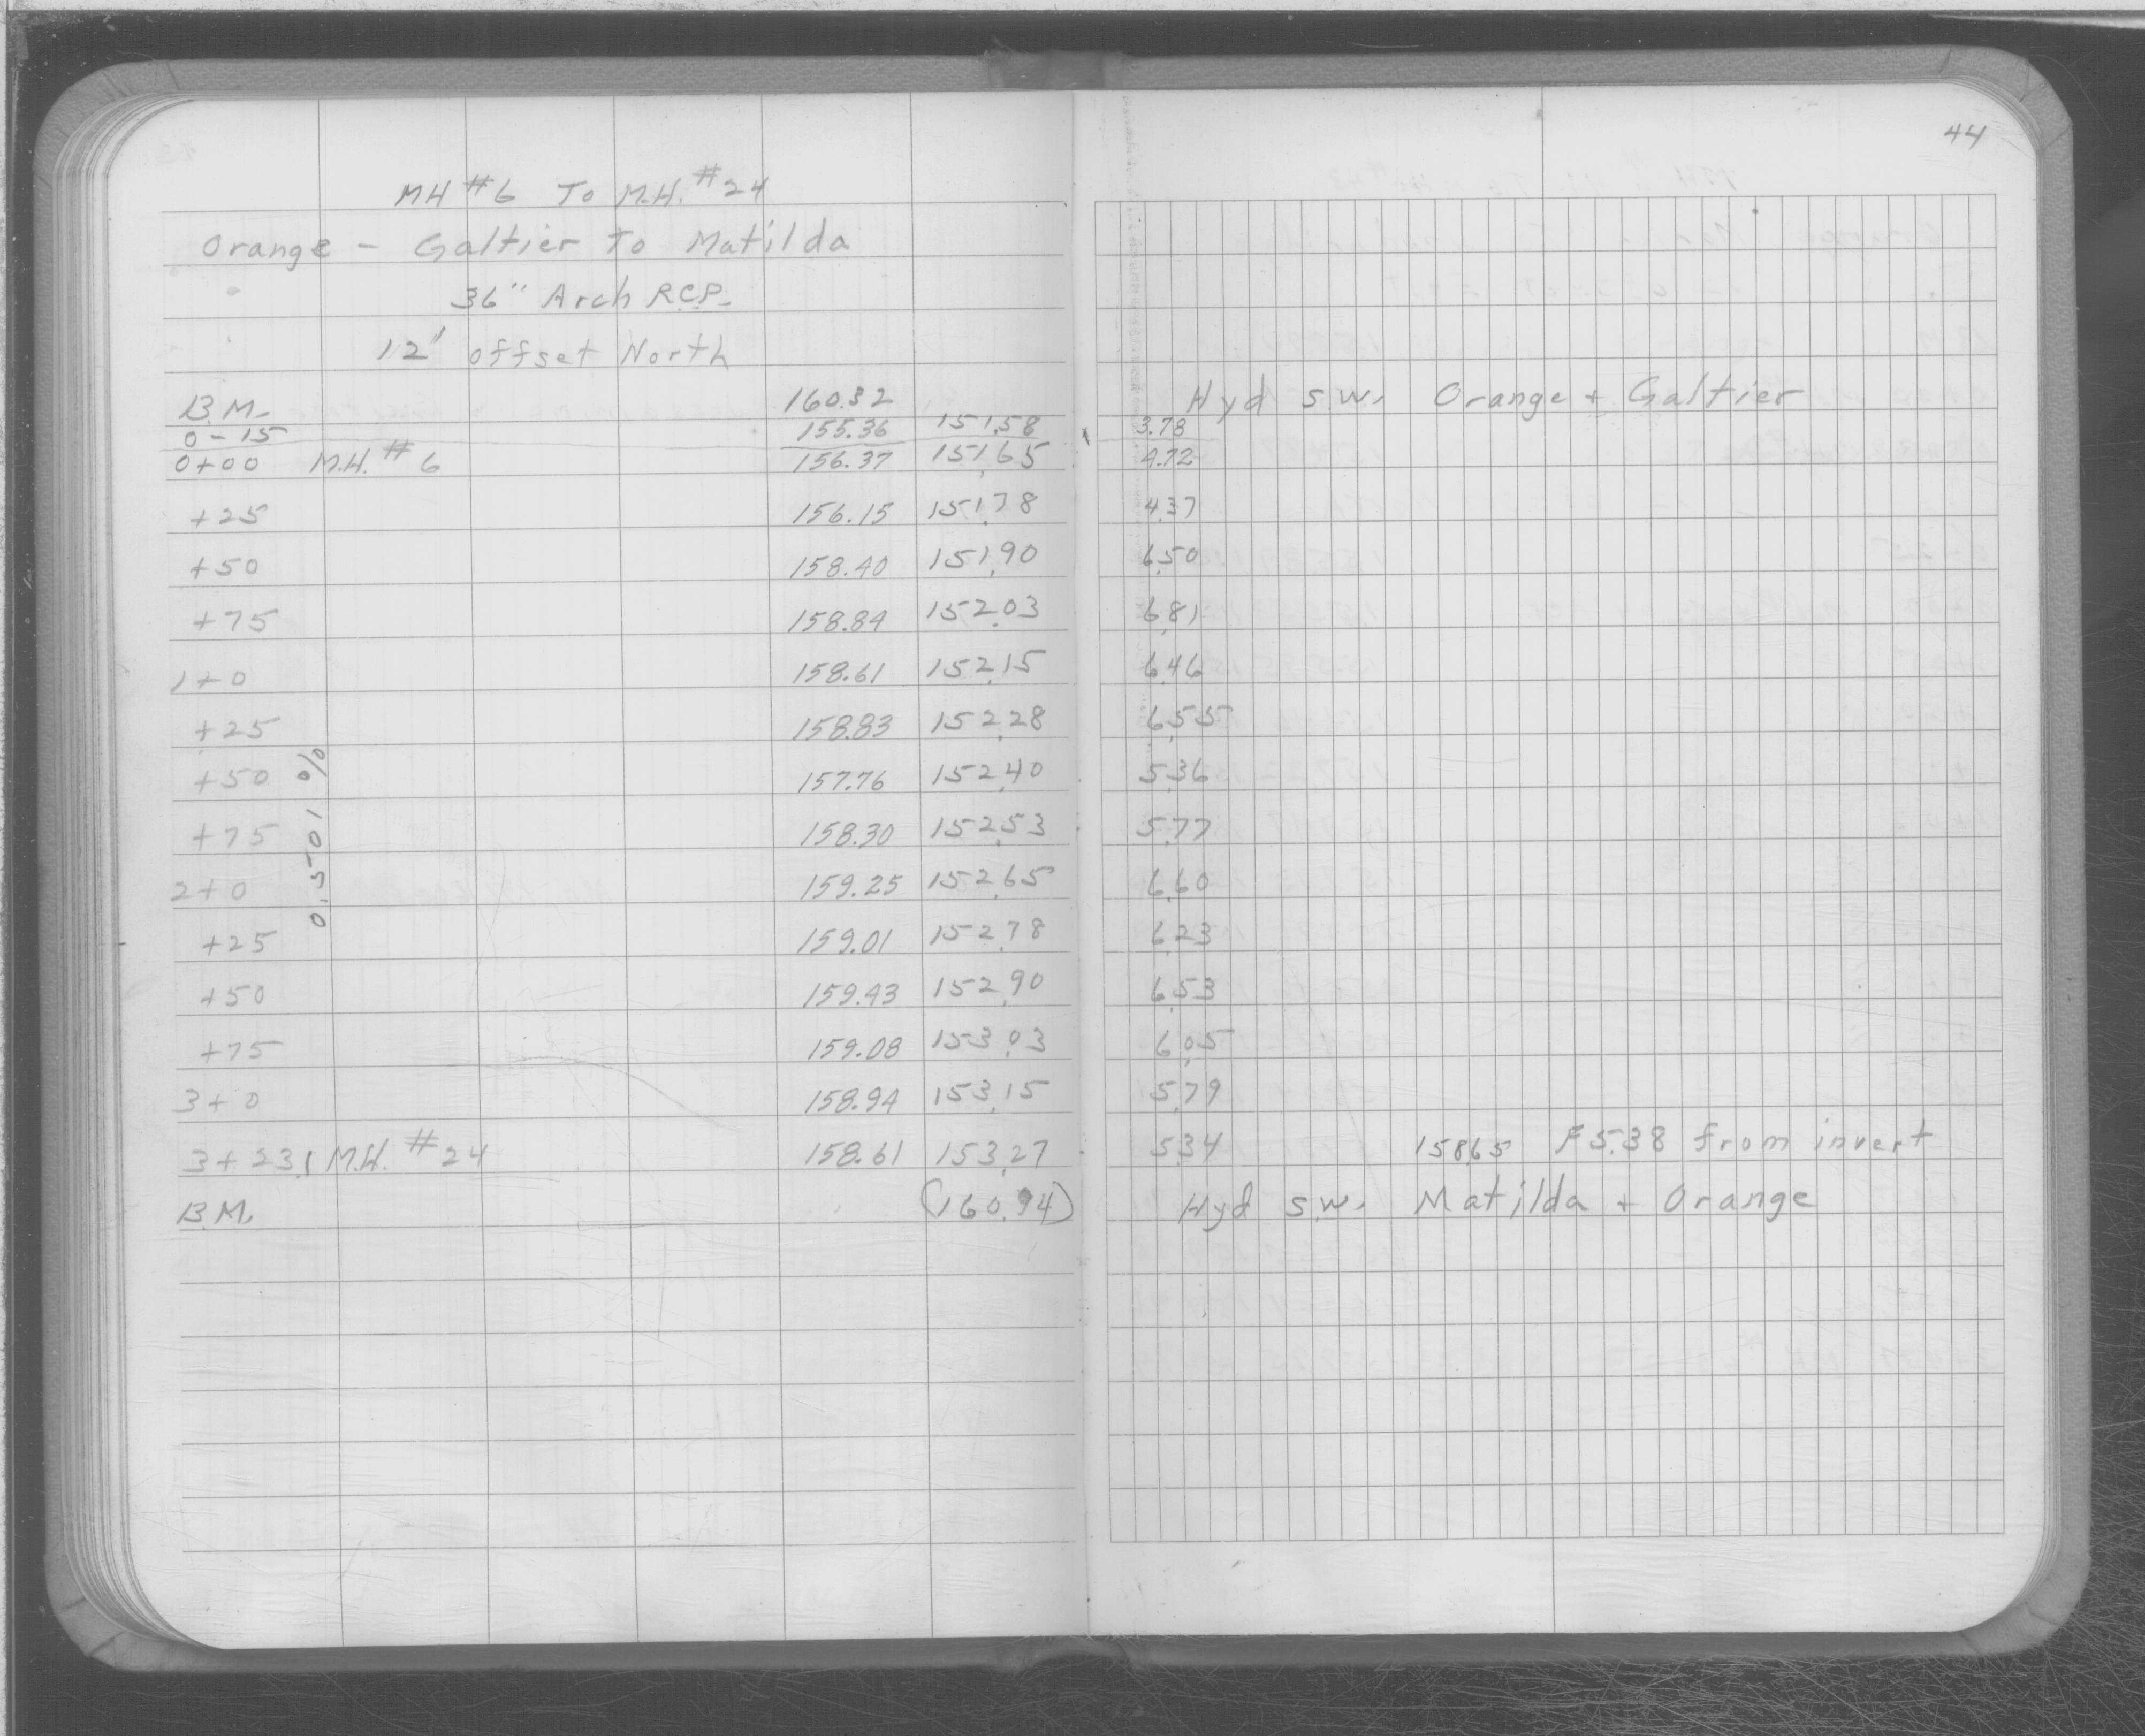 44
MH #6 To M.H. #24
Orange - Galtier To Matilda
36" Arch R.C.P.
12' offset North
B.M. 160.32 Hyd S.W. Orange + Galtier
0-15 155.36 151.58 3.78
0+00 M.H. #6 156.37 151.65 4.72
+25 156.15 151.78 4.37
+50 158.40 151.90 6.50
+75 158.84 152.03 6.81
1+0 158.61 152.15 6.46
+25 158.83 152.28 6.55
+50 157.76 152.40 5.36
+75 158.30 152.53 5.77
2+0 159.25 152.65 6.60
+25 159.01 152.78 6.23
+50 159.43 152.90 6.53
+75 159.08 153.03 6.05
3+0 158.94 153.15 5.79
0.501 %
3+23.1 M.H. #24 158.61 153.27 5.34 158.65 F5.38 from invert
B.M. (160.94) Hyd S.W. Matilda + Orange